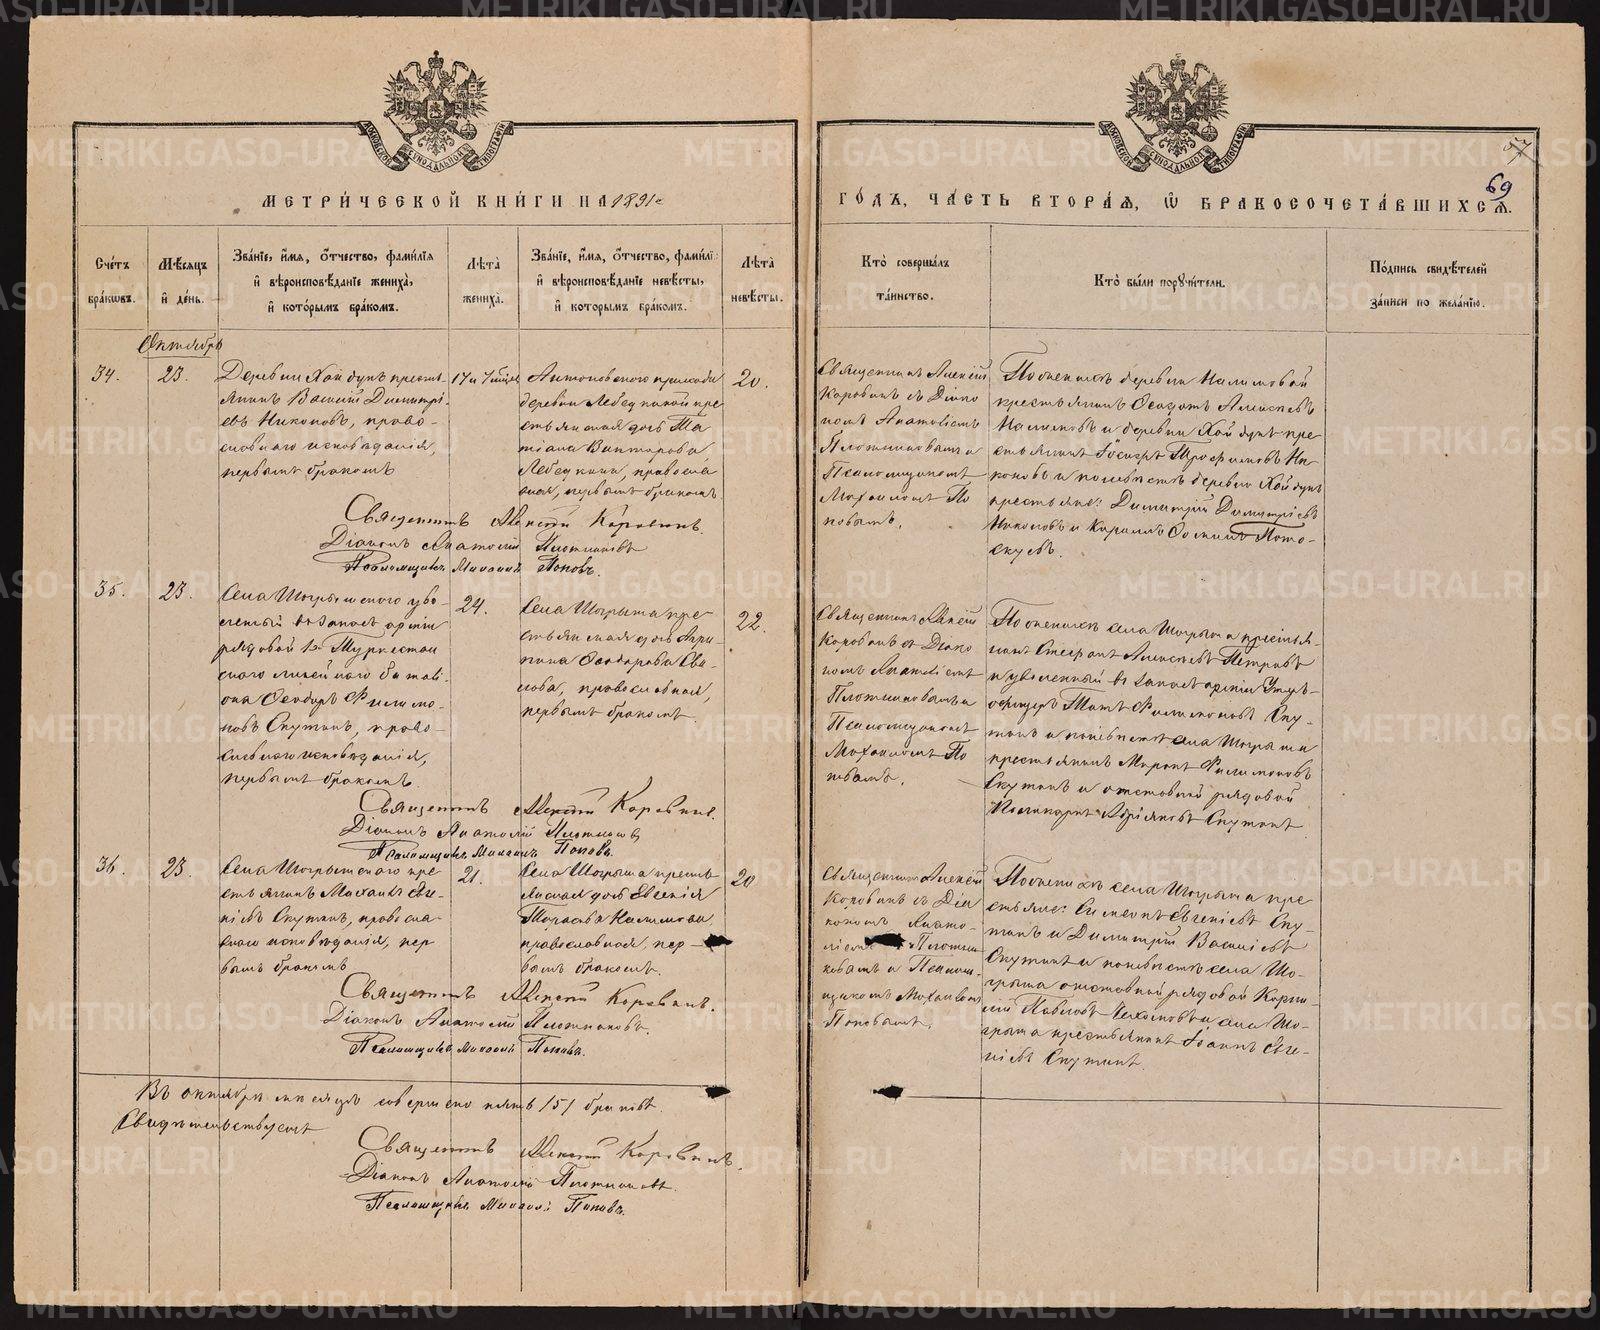 МЕТРИ́ЧЕСКОЙ КНИ́ГИ НА 1891 г
ГО́ДЪ, ЧА́СТЬ ВТОРА́Я, Ѡ БРАКОСОЧЕТА́ВШИХСЯ.
57
69
Сче́тъ бра́кѡвъ.
Мѣ́сяцъ и де́нь.
Зва́нїе, и́мя, ѻ́тчество, фами́лїя и вѣроисповѣ́данїе жениха̀, и кото́рымъ бра́комъ.
Лѣ́та жениха̀.
Зва́нїе, и́мя, ѻ́тчество, фами́лї: и вѣроисповѣ́данїе невѣ́сты, и кото́рымъ бра́комъ.
Лѣ́та невѣ́сты.
Кто̀ соверша́лъ та́инство.
Кто̀ бы́ли порꙋчи́тели.
По́дпись свидѣ́телей за́писи по жела́нїю.
Октябрь
34.
23.
Деревни Хайдукъ кресть-
янинъ Василій Димитрі-
евъ Никоновъ, право-
славнаго исповѣданія,
первымъ бракомъ
17 и 7 мѣсяц
Антоновского прихода
деревни Лебедкиной кре
стьянская дочь Та
тіана Викторова
Лебедкина, правосла
вная, первымъ бракомъ
20.
Священникъ Алексій
Коровинъ съ Діако
номъ Анатоліемъ
Плотниковымъ и
Псаломщикомъ
Михаиломъ По
повымъ.
крестьянинъ Алексѣевъ
и деревни Хайдукъ кре
стьянинъ Іосифъ Трофимовъ Ни
коновъ и по невѣстѣ деревни Хайдукъ
крестьяне: Димитрій Димитріевъ
Никоновъ и Пото-
скуевъ.
Священникъ Алексій Коровинъ.
Діаконъ Анатолій Плотниковъ
Псаломщикъ Михаилъ Поповъ.
35.
23.
Села Шогрышского уво-
ленный въ запасъ арміи
рядовой 1го Туркестан
скаго линейнаго баталі
она Ѳеодоръ Филимо-
новъ Скутинъ, право-
славнаго исповѣданія,
первымъ бракомъ
24.
Села Шогрыша кре-
стьянская дочь Агри-
пина Ѳеодорова
православная,
первымъ бракомъ.
22.
Священникъ Алексій
Коровинъ съ Діако
номъ Анатоліемъ
Плотниковымъ и
Псаломщикомъ
Михаиломъ По
повымъ.
По женихѣ села Шогрыша крестья-
нинъ Стефанъ Алексѣевъ Петровъ
и уволенный въ запасъ арміи Унтеръ-
офицеръ Титъ Филимоновъ Ску-
тинъ и по невѣстѣ села Шогрыша
крестьянинъ Миронъ Филимоновъ
Скутинъ и отставной рядовой
Скутинъ
Священникъ Алексій Коровинъ.
Діаконъ Анатолій Плотниковъ
Псаломщикъ Михаилъ Поповъ.
36.
23.
Села Шогрышского кре
стьянинъ Михаилъ Евге-
ніевъ Скутинъ, правосла-
внаго исповѣданія, пер
вымъ бракомъ
21.
Села Шогрыша кресть
янская дочь Евгенія
православная, пер-
вымъ бракомъ.
20
Священникъ Алексій
Коровинъ съ Діа
кономъ Анато-
ліемъ Плотни
ковымъ и Псалом-
щикомъ Михаиломъ
Поповымъ.
По женихѣ села Шогрыша кре
стьяне: Симеонъ Евгеніевъ Ску-
тинъ и Димитрій Васильевъ
Скутинъ и по невѣстѣ села Шо-
грыша отставной рядовой Корни-
лій Павловъ и села Шо-
грыша крестьянинъ Іоаннъ Евге-
ніевъ Скутинъ.
Священникъ Алексій Коровинъ.
Діаконъ Анатолій Плотниковъ.
Псаломщикъ Михаилъ Поповъ.
Въ октябрѣ мѣсяцѣ совершено пять /5/ браковъ.
Свидѣтельствуемъ
Священникъ Алексій Коровинъ.
Діаконъ Анатолій Плотниковъ.
Псаломщикъ Михаилъ Поповъ.
METRIKI.GASO-URAL.RU